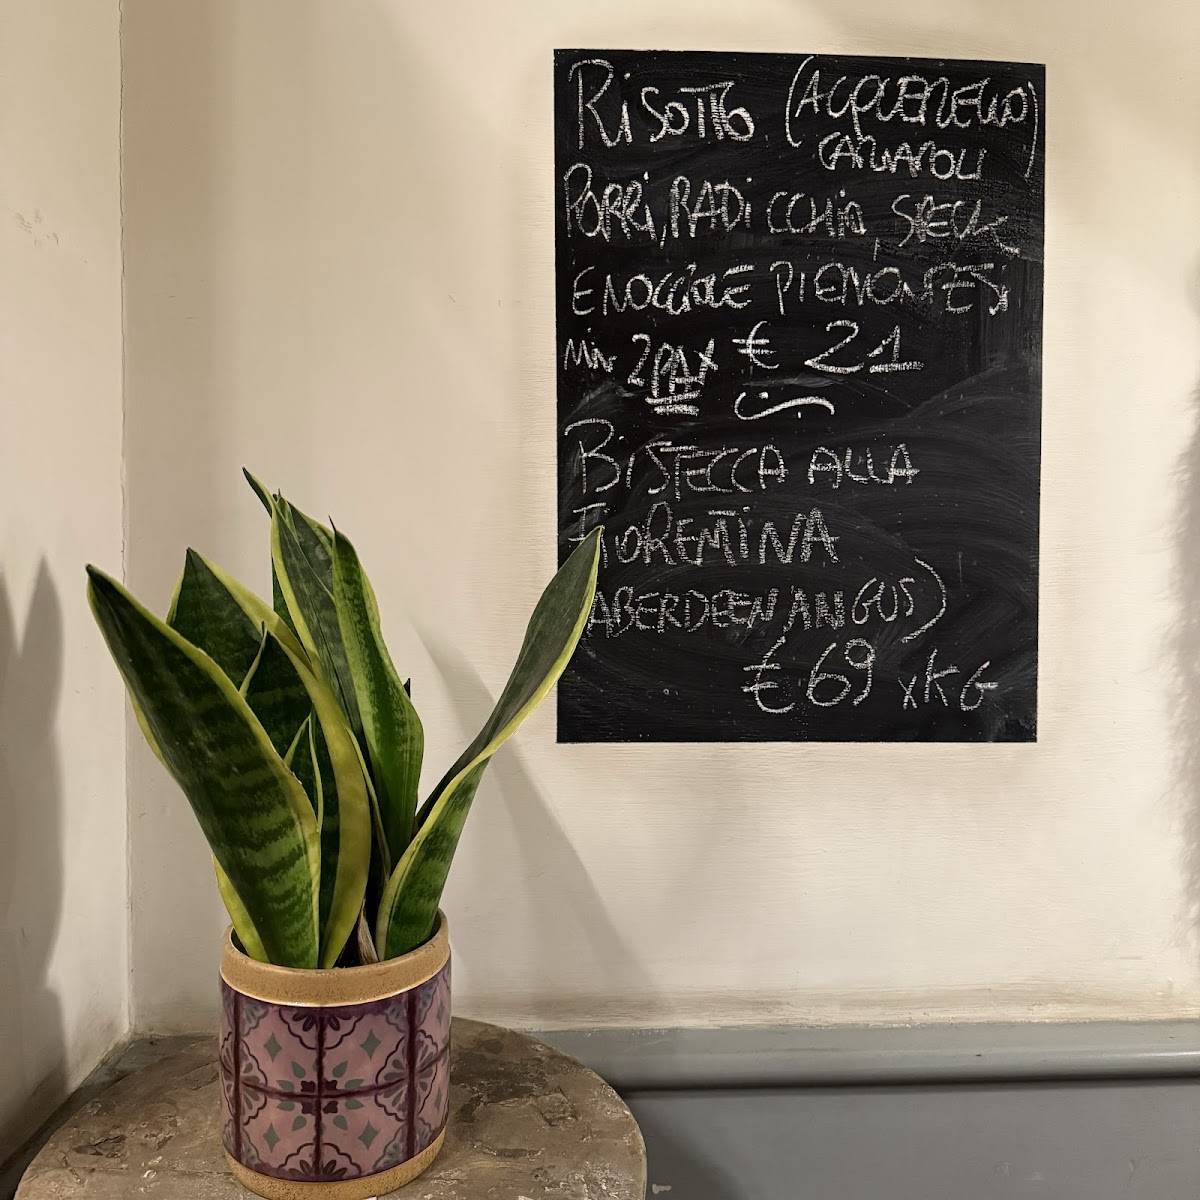 RISOTTO (ACQUERELLO)
CARNAROLI
PORRI, RADICCHIO, SPECK
E NOCCIOLE PIEMONTESI
MIN 2 PAX € 21
BISTECCA ALLA
FIORENTINA
(ABERDEEN ANGUS)
€ 69 x KG